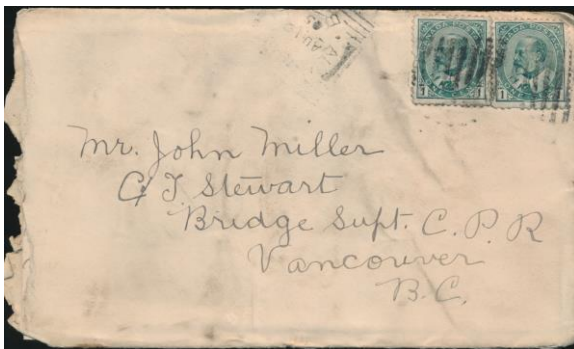 Mr. John Miller
C/ T. Stewart
Bridge Supt. C. P. R
Vancouver
B.C.
1 1
1 1